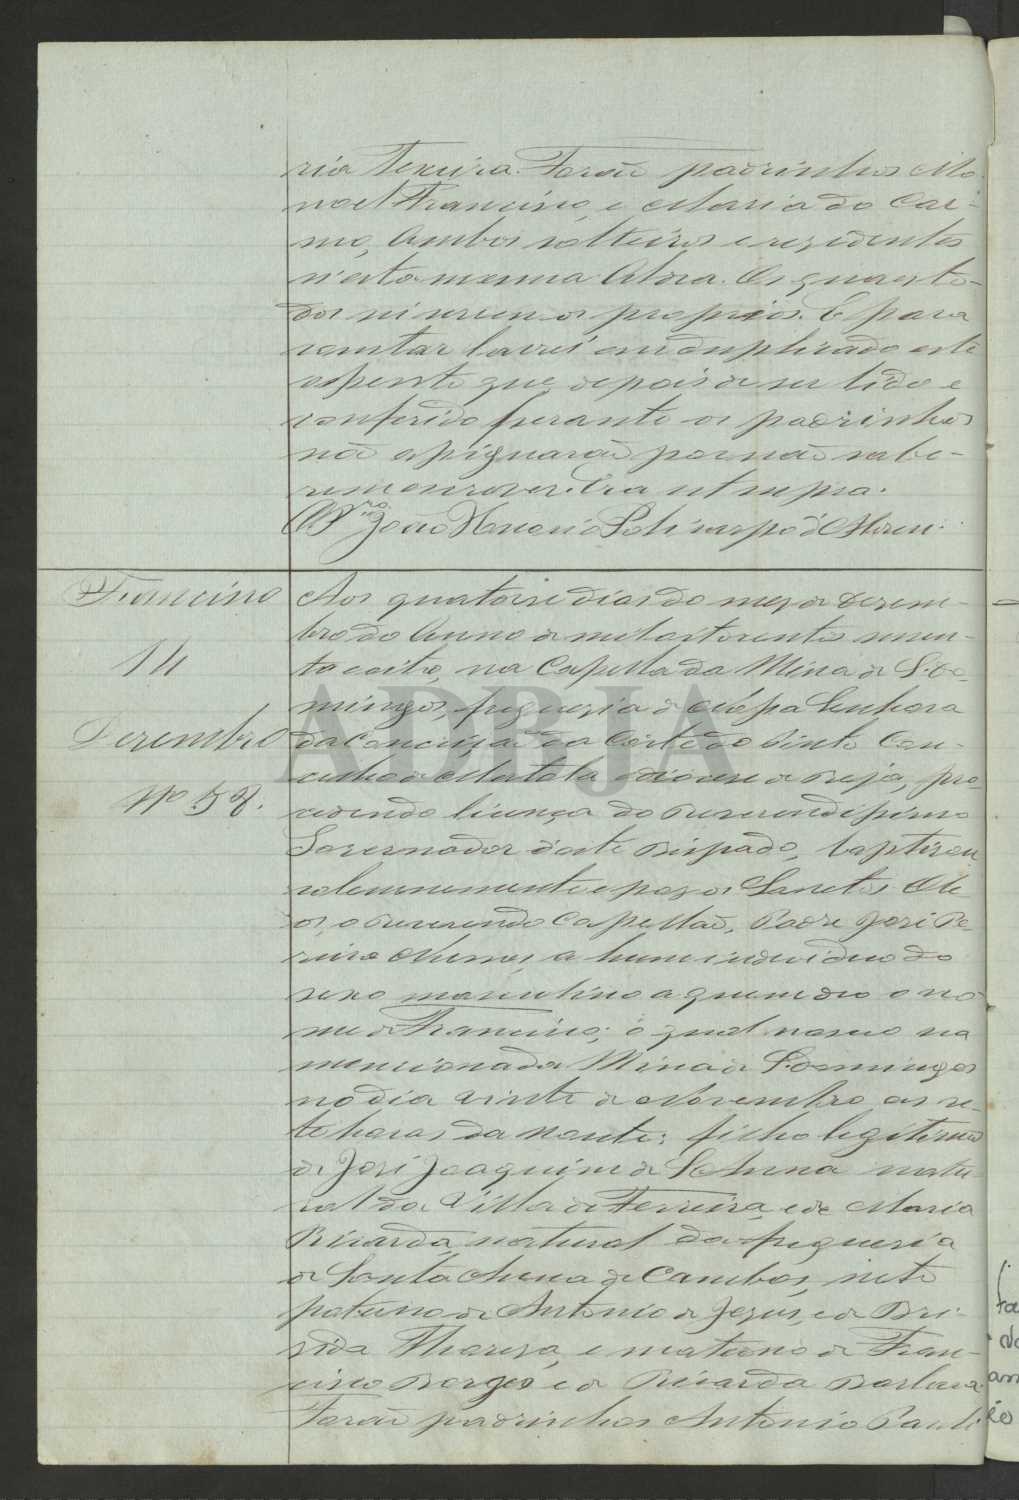 ria Texeira. Forão padrinhos Ma-
noel Francisco, e Maria do Car-
mo, ambos solteiros e rezidentes
n'esta mesma Aldea. Os quaes to-
dos os proprios. E para
constar lavrei em duplicado este
assento que depois de ser lido e
conferido perante os padrinhos
não assignarão por não sabe-
rem escrever. Era ut supra.
O P. João Polinarpo d'Abreu.
Francisco
14
Dezembro
Nº 58.
Aos quatorse dias do mez de Dezem-
bro do Anno de mil oitocentos secen-
ta e oito, na Capella da Mina de S. Do-
mingos, freguezia de Nossa Senhora
da Conceição da Côrte do Pinto Con-
celho de Mertola diocese de Beja, pre-
cedendo licença do Reverendissimo
Governador d'este Bispado, baptizou
solemnemente e poz os Sanctos Ole-
os, o Reverendo Capellão, Padre José Pe-
reira Nunes, a hum individuo do
sexo masculino a quem deo o no-
me de Francisco; o qual nasceo na
mencionada Mina de S. Domingos
no dia vinte de Novembro as se-
te horas da noute: filho legitimo
de José Joaquim de S. Anna natu-
ral da Villa de Ferreira, e de Maria
Ricarda, natural da freguezia
de Santa Anna de Cambas, neto
paterno de Antonio de Jezus, e de Bri-
gida Thereza, e materno de Fran-
cisco Borges e de Ricarda Barbara.
Forão padrinhos Antonio Pauli-
ADBJA